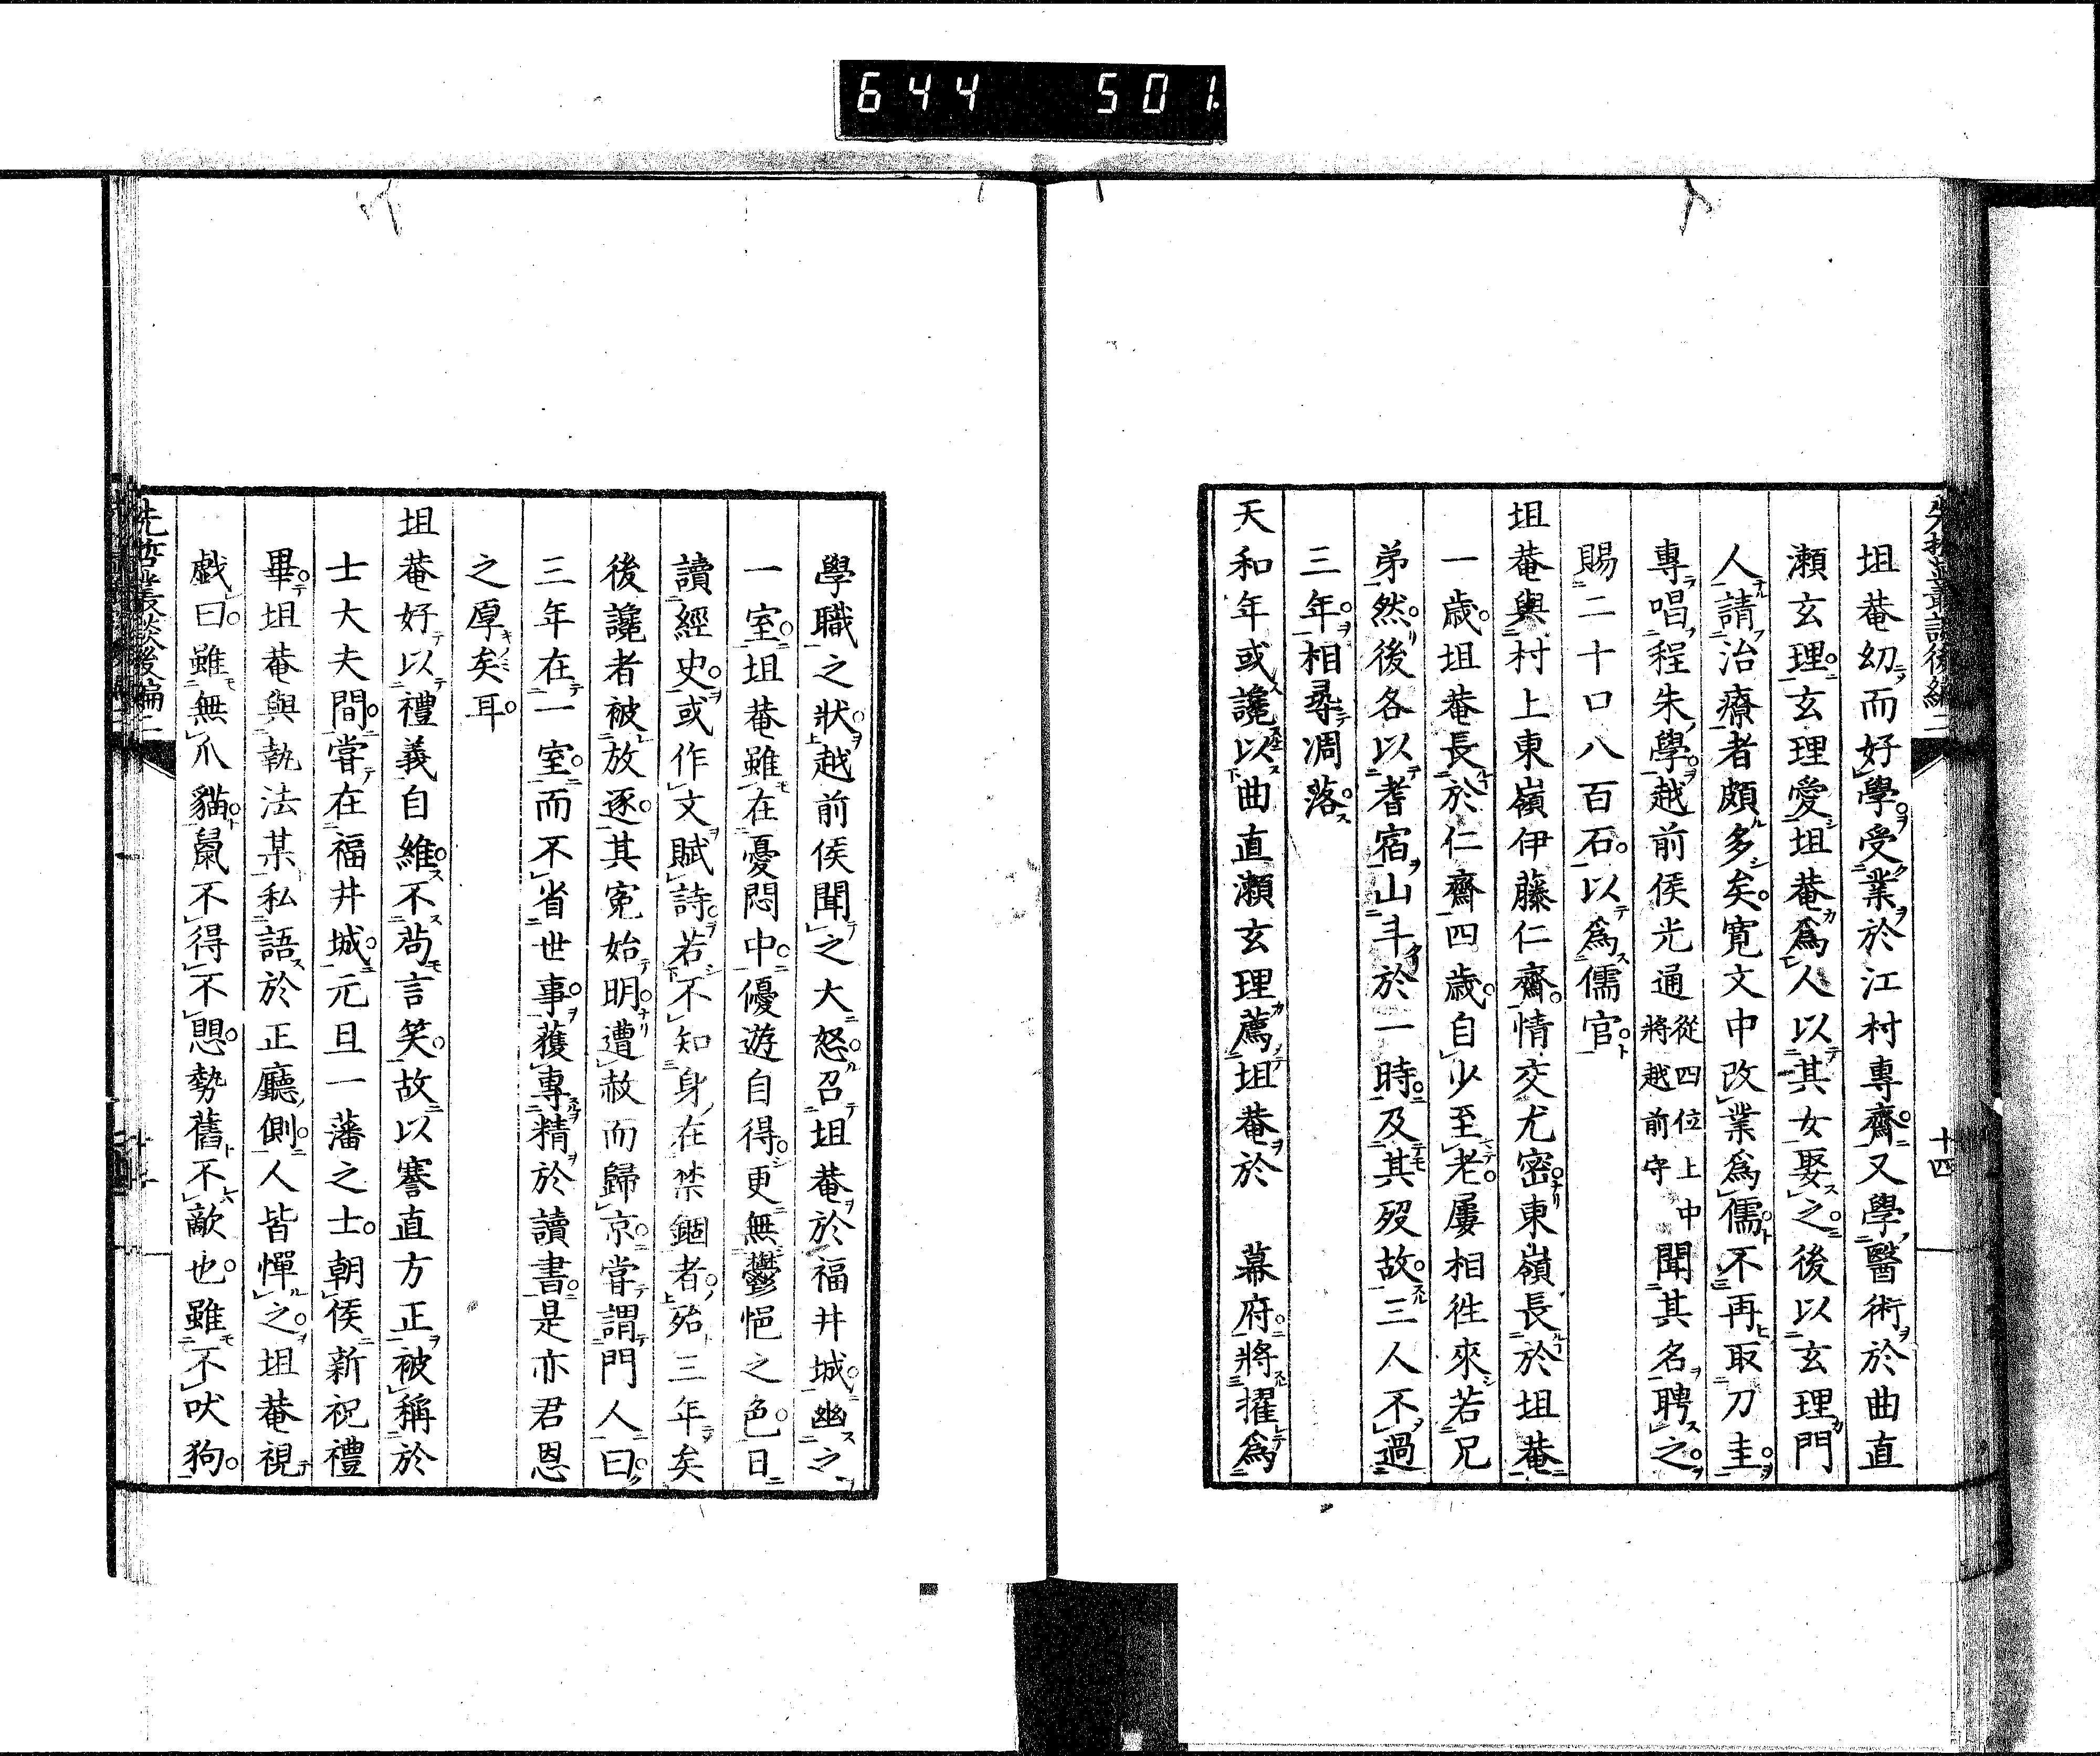 644 501
先哲叢談後編二
十四
坦菴幼而好學受業於江村專齋又學醫術於曲直
瀨玄理玄理愛坦菴爲人以其女娶之後以玄理門
人請治療者頗多矣寬文中改業爲儒不再取刀圭
專唱程朱學越前侯光通從四位上中將越前守聞其名聘之
賜二十口八百石以爲儒官
坦菴與村上東嶺伊藤仁齋情交尤密東嶺長於坦菴
一歲坦菴長於仁齋四歲自少至老屢相徃來若兄
弟然後各以耆宿山斗於一時及其歿故三人不過
三年相尋凋落
天和年或讒以曲直瀨玄理薦坦菴於 幕府將擢爲
學職之狀越前侯聞之大怒召坦菴於福井城幽之
一室坦菴雖在憂悶中優遊自得更無鬱悒之色日
讀經史或作文賦詩若不知身在禁錮者殆三年矣
後讒者被放逐其寃始明遭赦而歸京嘗謂門人曰
三年在一室而不省世事獲專精於讀書是亦君恩
之厚矣耳
坦菴好以禮義自維不茍言笑故以謇直方正被稱於
士大夫間嘗在福井城元旦一藩之士朝侯新祝禮
畢坦菴與執法某私語於正廳側人皆憚之坦菴視
戲曰雖無爪貓鼠不得不愳勢舊不敵也雖不吠狗
先哲叢談後編二